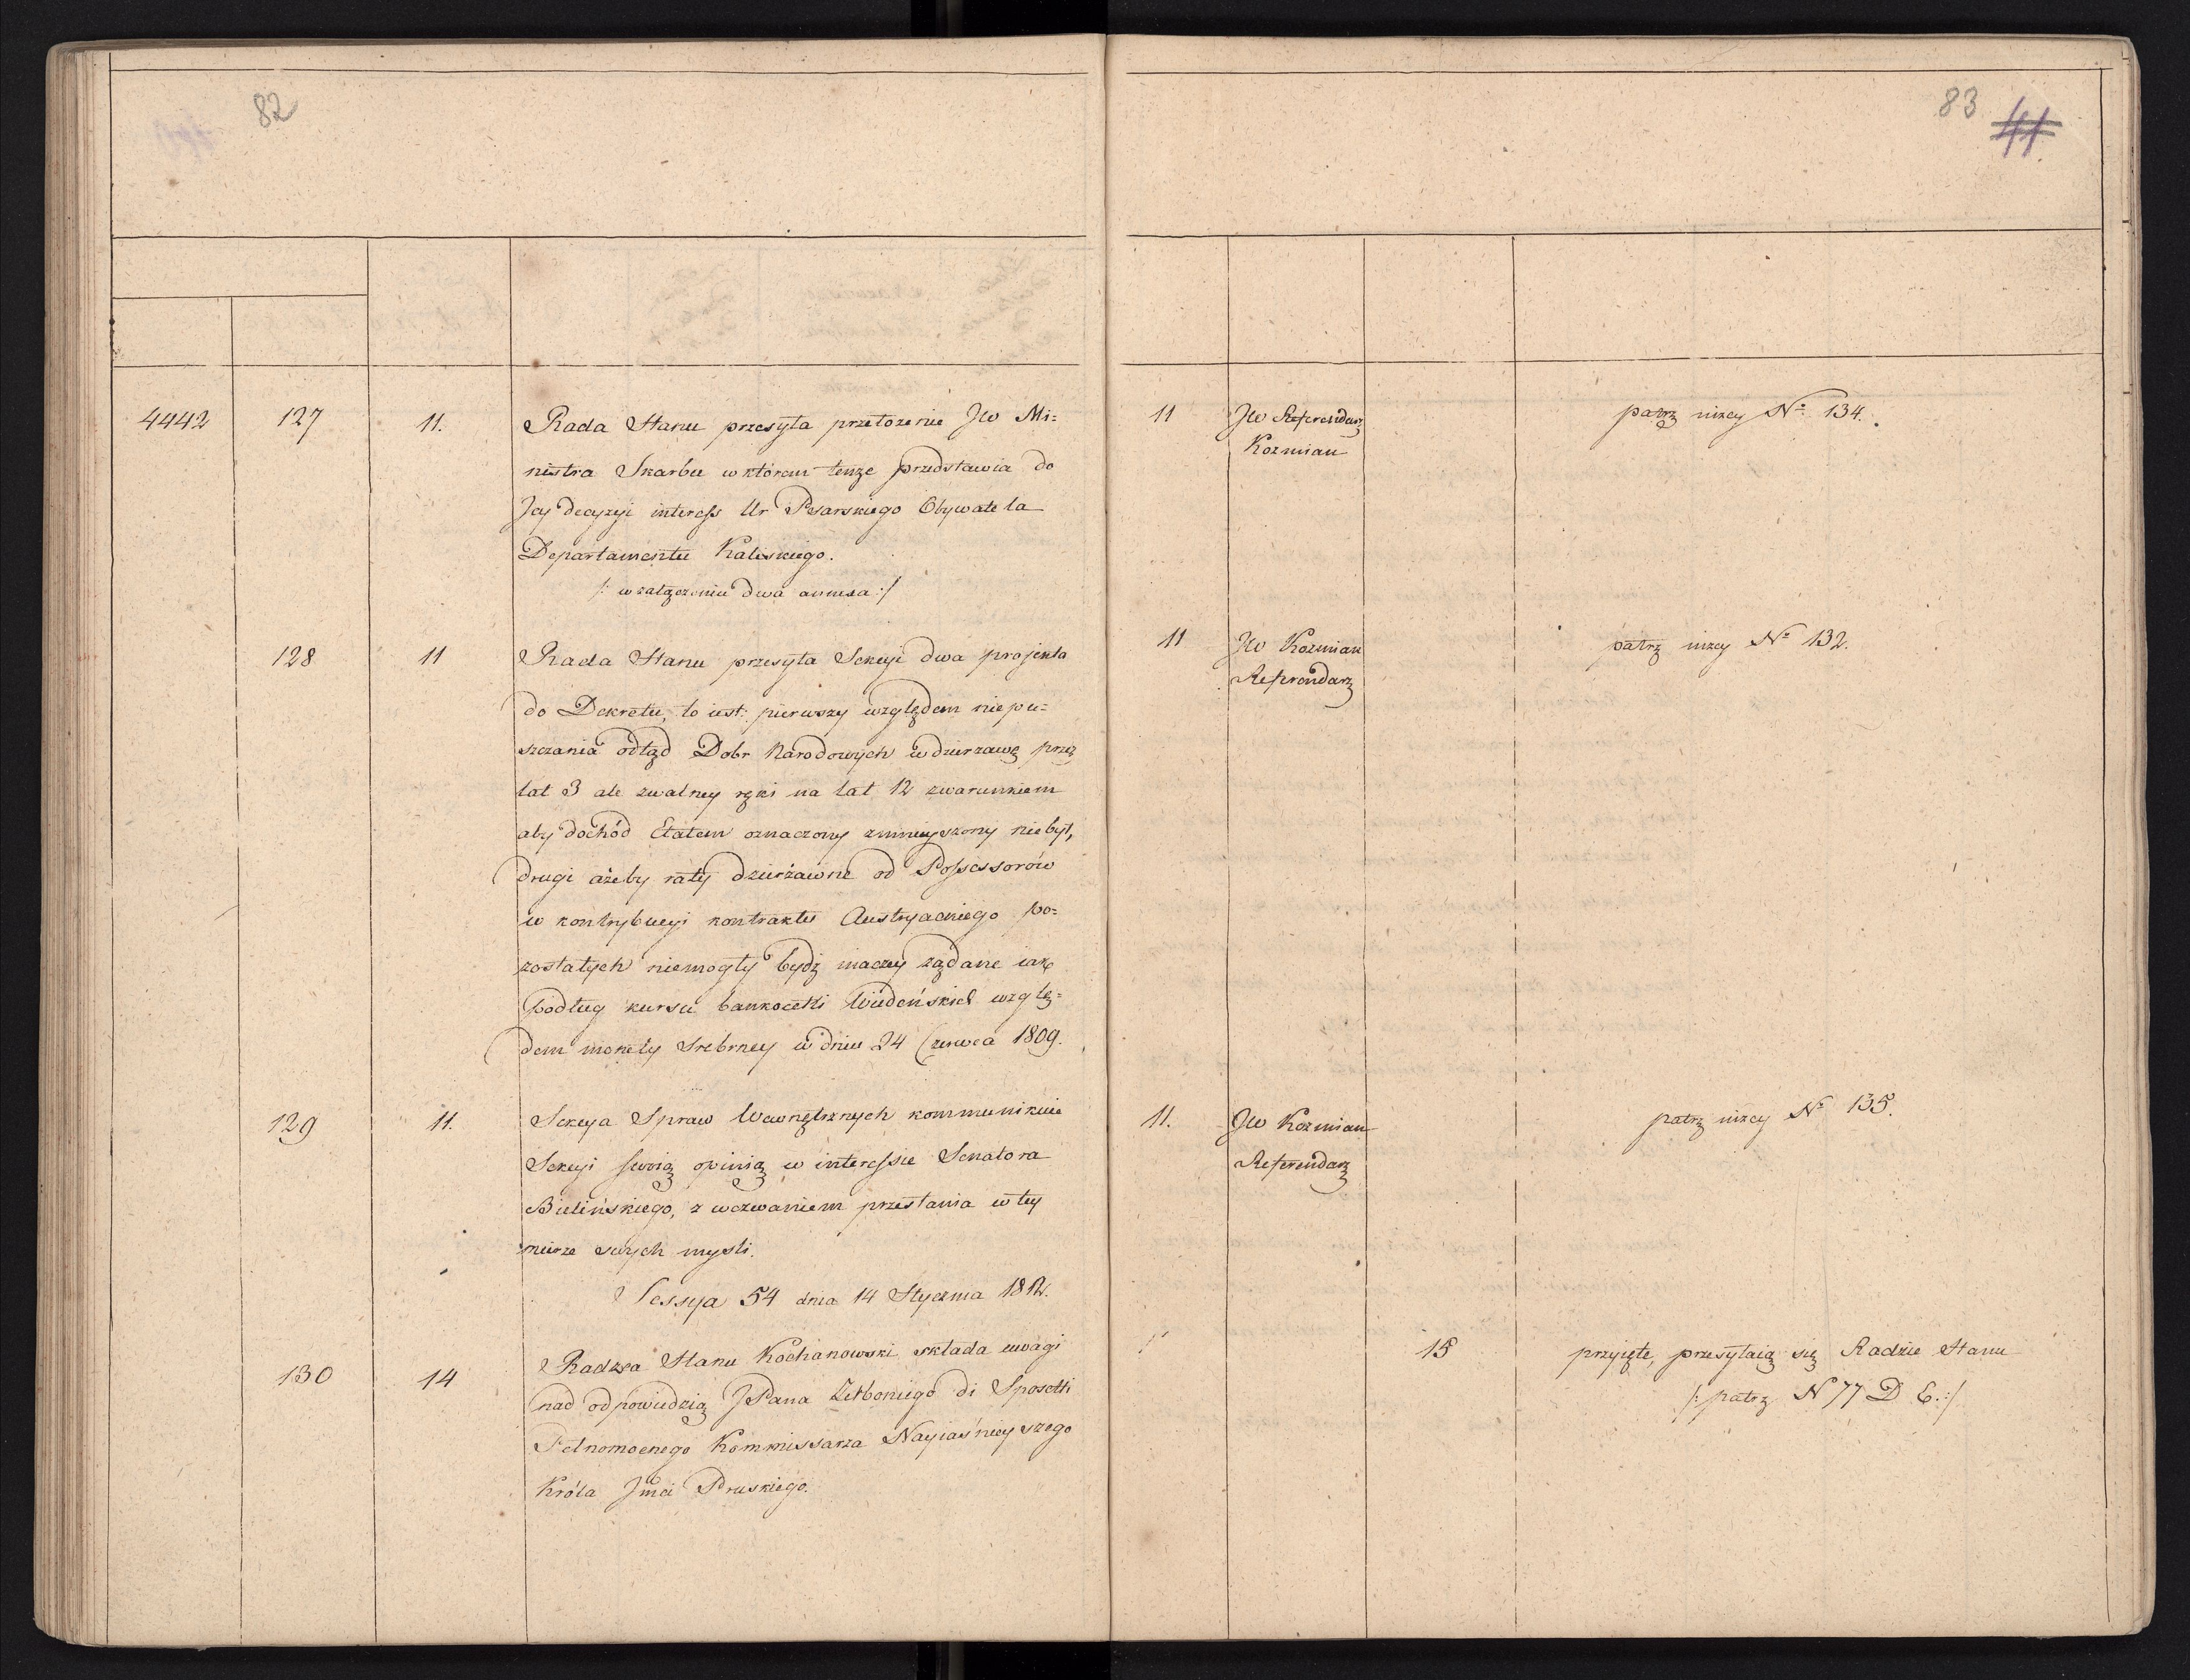 82
4442 127 11. Rada Stanu przesyła przełożenie JW Mi=
nistra Skarbu w którem tenże przedstawia do
Jey decyzyi interess Ur Psarskiego Obywatela
Departamentu Kaliskiego.
/: w załączeniu dwa annexa :/
128 11 Rada Stanu przesyła Sekcyi dwa projekta
do Dekretu, to iest: pierwszy względem niepu=
szczania odtąd Dobr Narodowych w dzierzawę przez
lat 3 ale zwalney ręki na lat 12 zwarunkiem
aby dochód Etatem oznaczony zmnieyszony nie był,
drugi ażeby raty dzierżawne od Possessorów
w kontrybucyi kontraktu Austryackiego po=
zostałych niemogły bydź inaczey żądane iak
podług kursu bankocetli Wiedeńskich wzglę=
dem monety srebrney w dniu 24 Czerwca 1809.
129 11. Sekcya Spraw Wewnętrznych kommunikuie
Sekcyi swoią opinią w interessie Senatora
Bielińskiego, z wezwaniem przesłania w tey
mierze swych myśli.
Sessya 54 dnia 14 Stycznia 1812.
130 14 Radzca Stanu Kochanowski składa uwagi
nad odpowiedzią JPana Zerboniego di Sposetti
Pełnomocnego Kommissarza Nayiaśnieyszego
Króla Jmci Pruskiego.
83 41
11 JW Referendarz patrz niżey No 134.
Kozmian
11 JW Kozmian patrz niżey No 132.
Referendarz
11. JW Kozmian patrz niżey No 135.
Referendarz
15 przyięte, przesyłaią się Radzie Stanu
/: patrz N 77 D E. :/